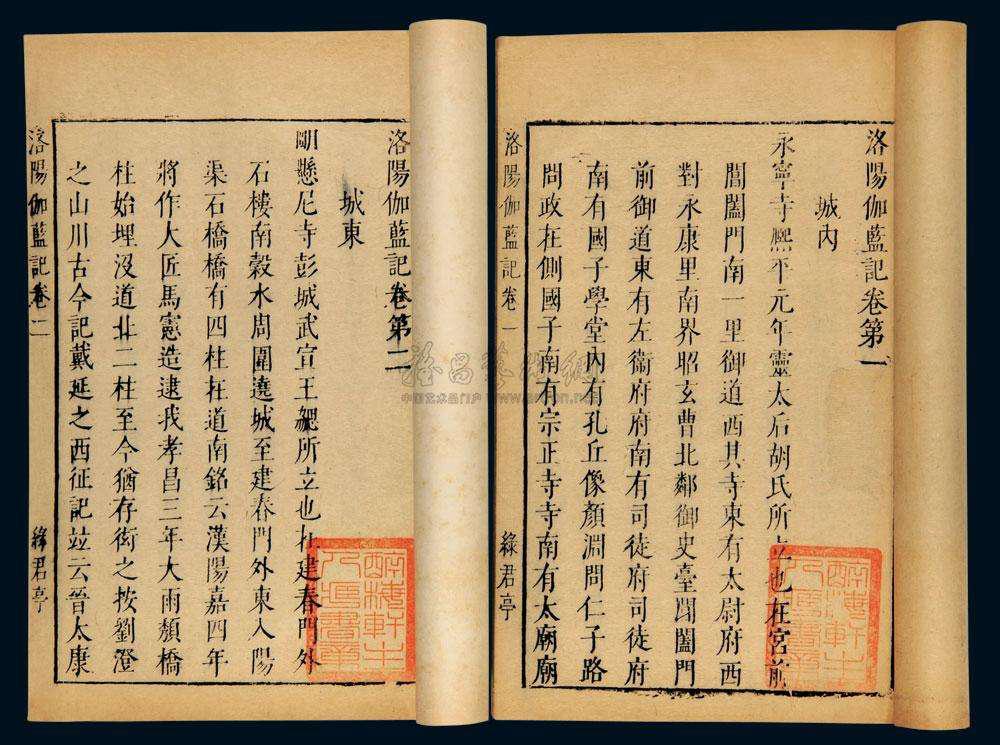 洛陽伽藍記卷第一
城內
永寧寺熙平元年靈太后胡氏所立也在宮前
閶闔門南一里御道西其寺東有太尉府西
對永康里南界昭玄曹北鄰御史臺閶闔門
前御道東有左衞府府南有司徒府司徒府
南有國子學堂內有孔丘像顏淵問仁子路
問政在側國子南有宗正寺寺南有太廟廟
洛陽伽藍記卷一
綠君亭
洛陽伽藍記卷第二
城東
明懸尼寺彭城武宣王勰所立也在建春門外
石樓南穀水周圍遶城至建春門外東入陽
渠石橋橋有四柱在道南銘云漢陽嘉四年
將作大匠馬憲造逮我孝昌三年大雨頹橋
柱始埋沒道北二柱至今猶存衒之按劉澄
之山川古今記戴延之西征記竝云晉太康
洛陽伽藍記卷二
綠君亭